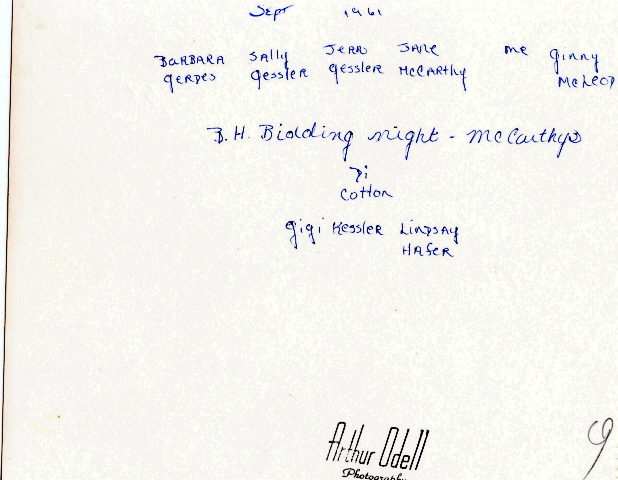 Sept 1961
BARBARA Sally JEAN JANE me ginny
gerdes gessler gessler McCarthy McLeod
B.H. Bidding night - McCarthys
Di
Cotton
gigi Kessler Lindsay
Hafer
Arthur Odell
Photography
9